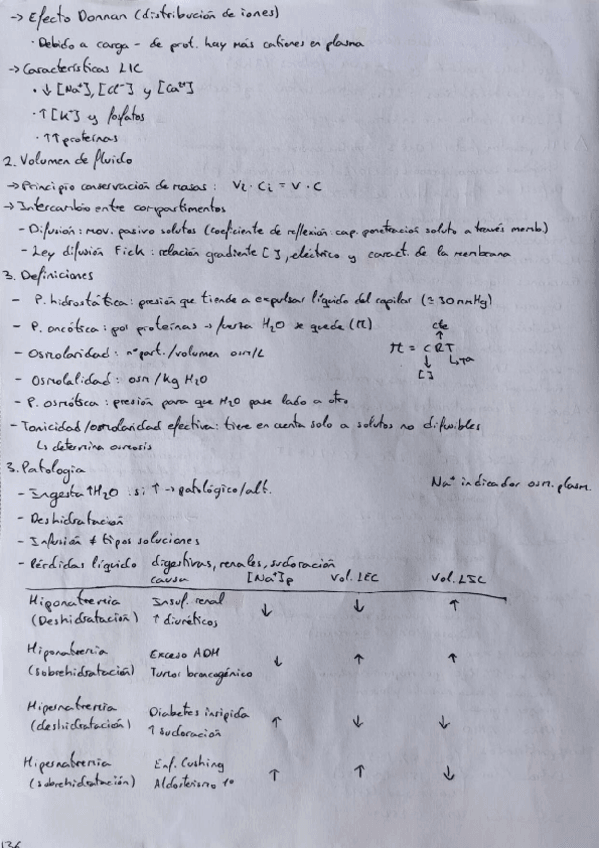 → Efecto Donnan (distribución de iones)
· Debido a carga - de prot. hay más cationes en plasma
→ Características LIC
· ↓ [Na⁺], [Cl⁻] y [Ca²⁺]
· ↑ [K⁺] y fosfatos
· ↑↑ proteínas
2. Volumen de fluido
→ Principio conservación de masas: Vi · Ci = V · C
→ Intercambio entre compartimentos
- Difusión: mov. pasivo solutos (coeficiente de reflexión: cap. penetración soluto a través memb.)
- Ley difusión Fick: relación gradiente [ ], eléctrico y caract. de la membrana
3. Definiciones
- P. hidrostática: presión que tiende a expulsar líquido del capilar (≃ 30 mmHg)
- P. oncótica: por proteínas → fuerza H₂O se quede (π)
cte
↑
- Osmolaridad: nº part./volumen osm/L
π = CRT
↓ ↳ Tª
[ ]
- Osmolalidad: osm / kg H₂O
- P. osmótica: presión para que H₂O pase lado a otro
- Tonicidad/osmolaridad efectiva: tiene en cuenta solo a solutos no difusibles
↳ determina osmosis
3. Patología
- Ingesta ↑H₂O : si ↑ → patológico/alt.
Na⁺ indicador osm. plasm.
- Deshidratación
- Infusión ≠ tipos soluciones
- Pérdidas líquido digestivas, renales, sudoración
causa [Na⁺]p Vol. LEC Vol. LIC
Hiponatremia Insuf. renal ↓ ↓ ↑
(Deshidratación) ↑ diuréticos
Hiponatremia Exceso ADH ↓ ↑ ↑
(sobrehidratación) Tumor broncogénico
Hipernatremia Diabetes insípida ↑ ↓ ↓
(deshidratación) ↑ sudoración
Hipernatremia Enf. Cushing ↑ ↑ ↓
(sobrehidratación) Aldosterismo 1º